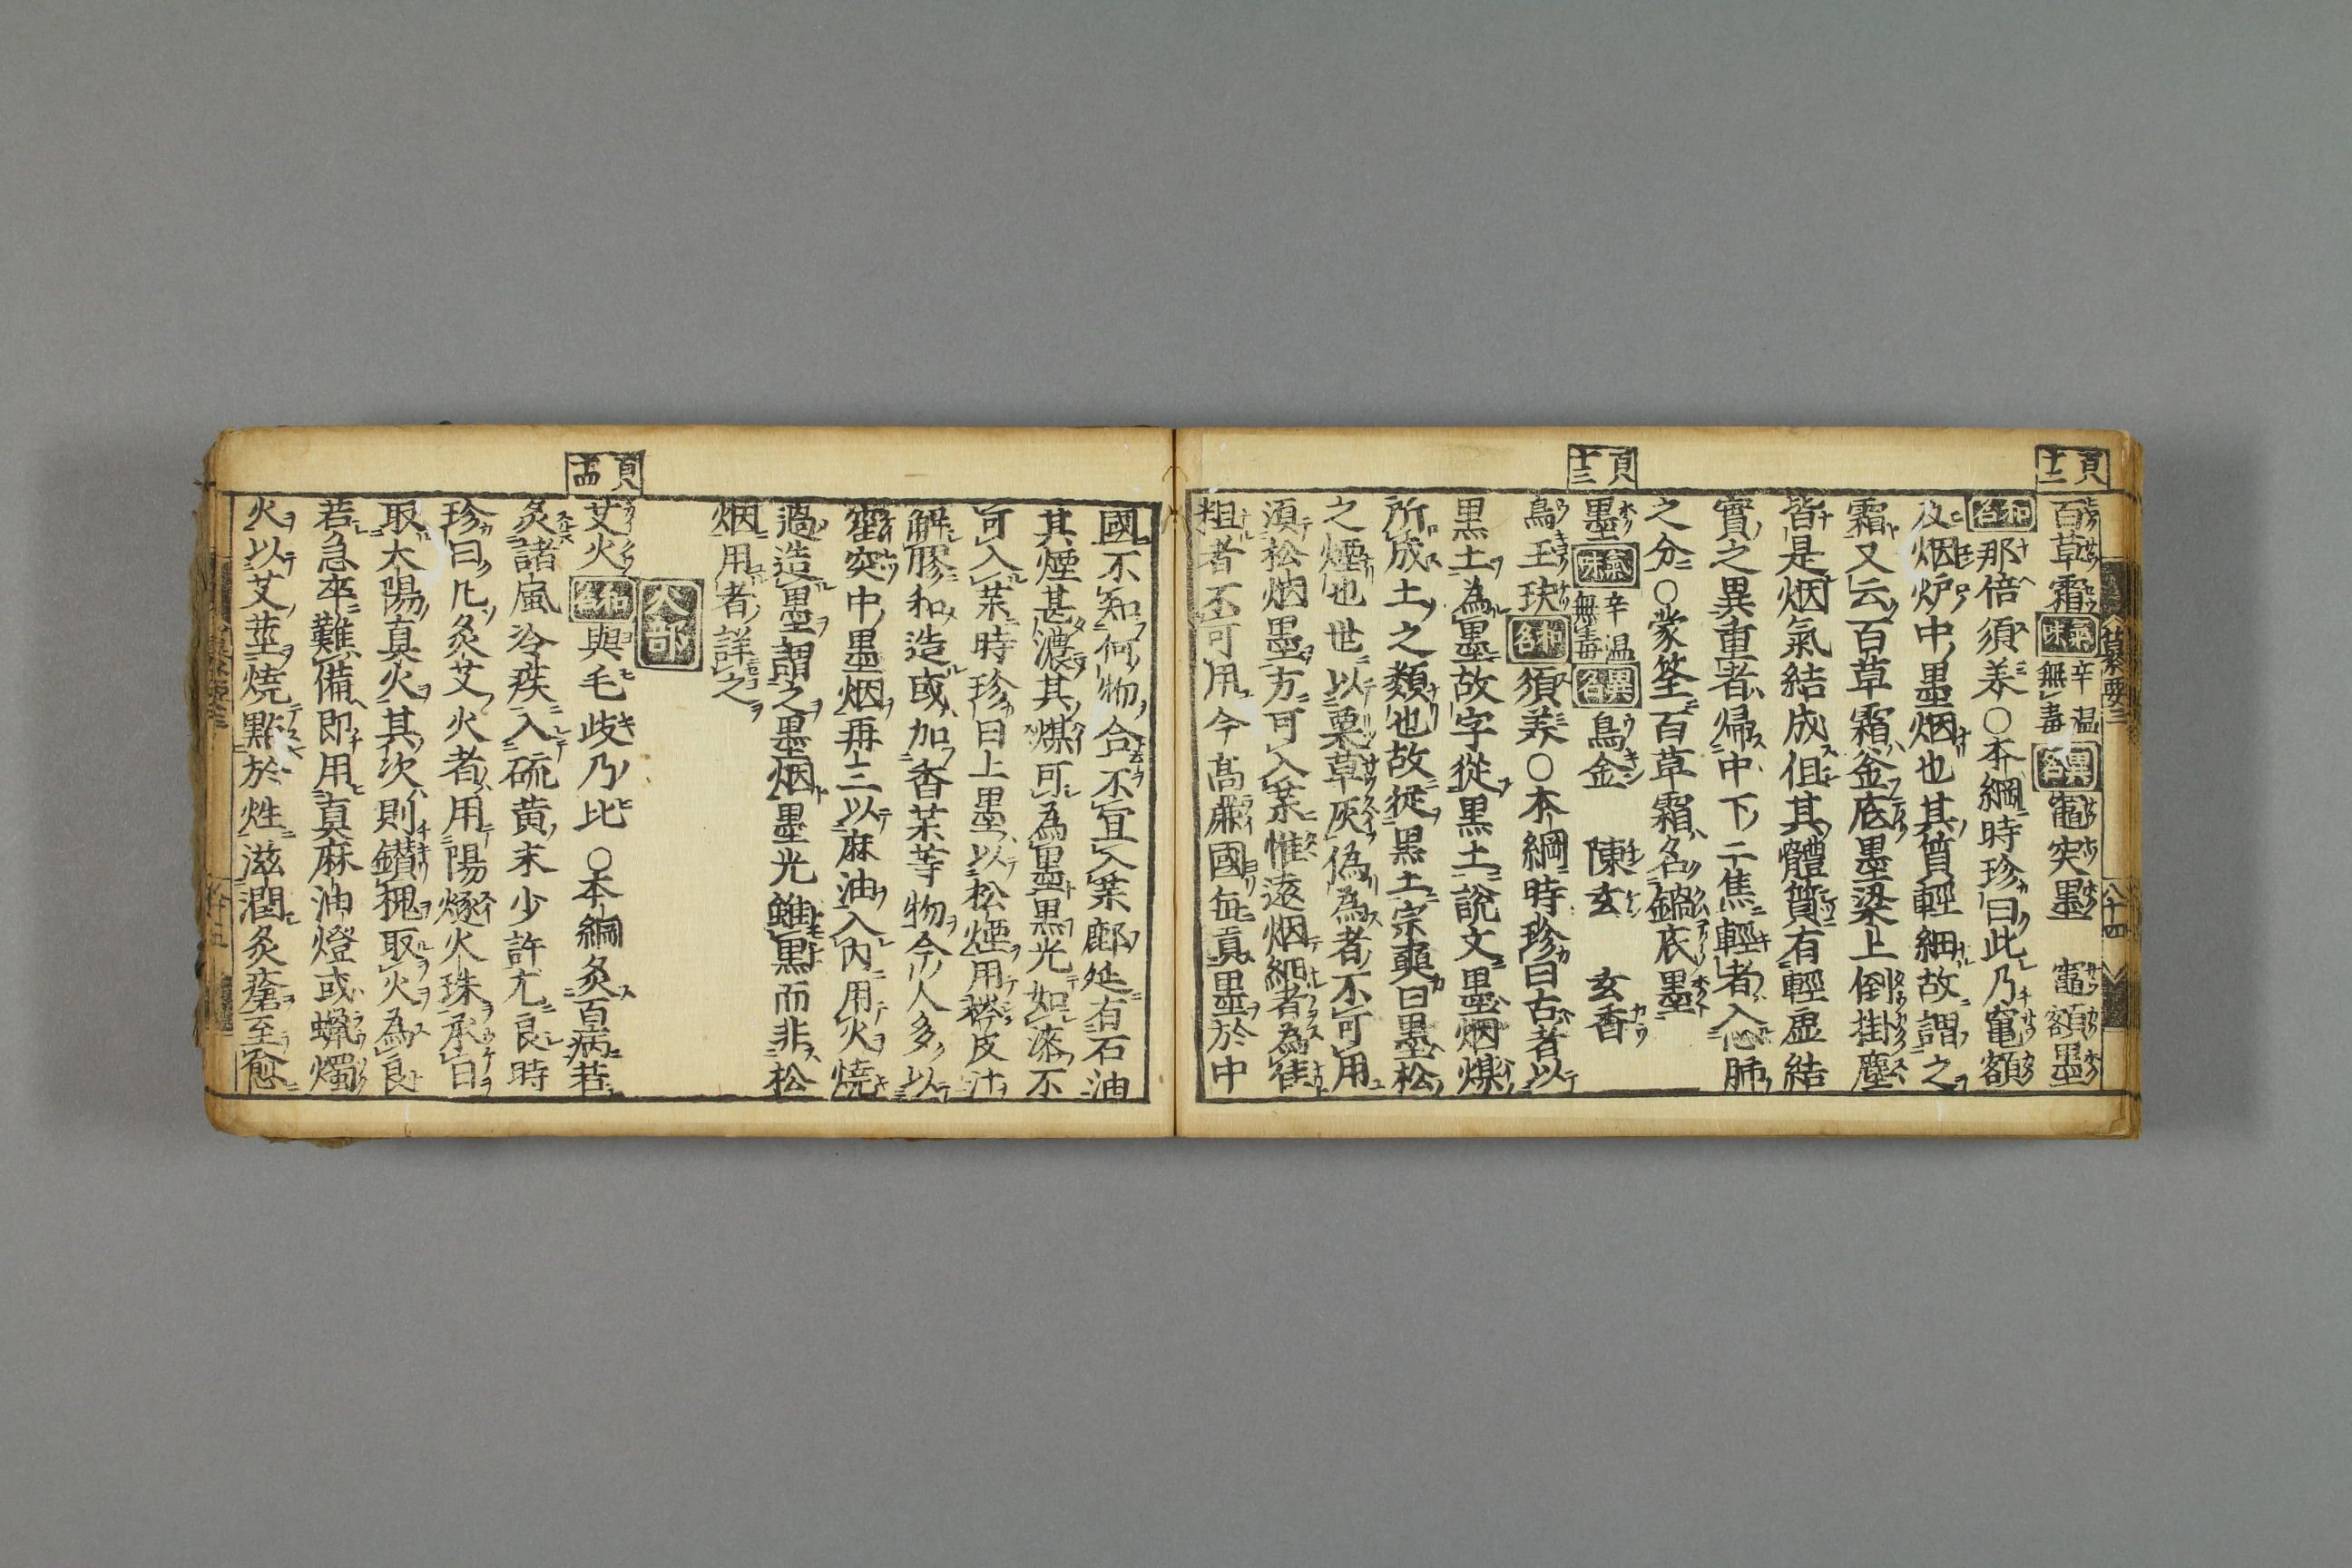 頁十二
百草霜 氣味 辛温無毒 異名 竈突墨 竈額墨
和名 那倍須美〇本綱時珍曰此乃竈額
及烟炉中墨烟也其質輕細故謂之
霜又云百草霜釜底墨梁上倒掛塵
皆是烟氣結成但其體質有輕虚結
實之異重者歸中下二焦輕者入心肺
之分〇蒙筌百草霜名鍋底墨
頁十三
墨 氣味 辛温無毒 異名 烏金 陳玄 玄香
烏玉玦 和名 須美〇本綱時珍曰古者以
黒土為墨故字從黒土說文墨烟煤
所成土之類也故從黒土宗奭曰墨松
之煙也世以粟草灰偽為者不可用
須松烟墨方可入藥惟遠烟細者為佳
粗者不可用今髙麗國每貢墨於中
國不知何物合不宜入藥鄜延有石油
其煙甚濃其煤可為墨黒光如漆不
可入藥時珍曰上墨以松煙用梣皮汁
解膠和造或加香藥等物今人多以
窑突中墨烟再三以麻油入內用火燒
過造墨謂之墨烟墨光雖黒而非松
烟用者詳之
火部
頁十四
艾火 和名 與毛岐乃比〇本綱灸百病若
灸諸風冷疾入硫黄末少許尤良時
珍曰凡灸艾火者用陽燧火珠承日
取太陽真火其次則鑚槐取火為良
若急卒難備即用真麻油燈或蠟燭
火以艾莖燒點於炷滋潤灸瘡至愈
纂要三
八十四